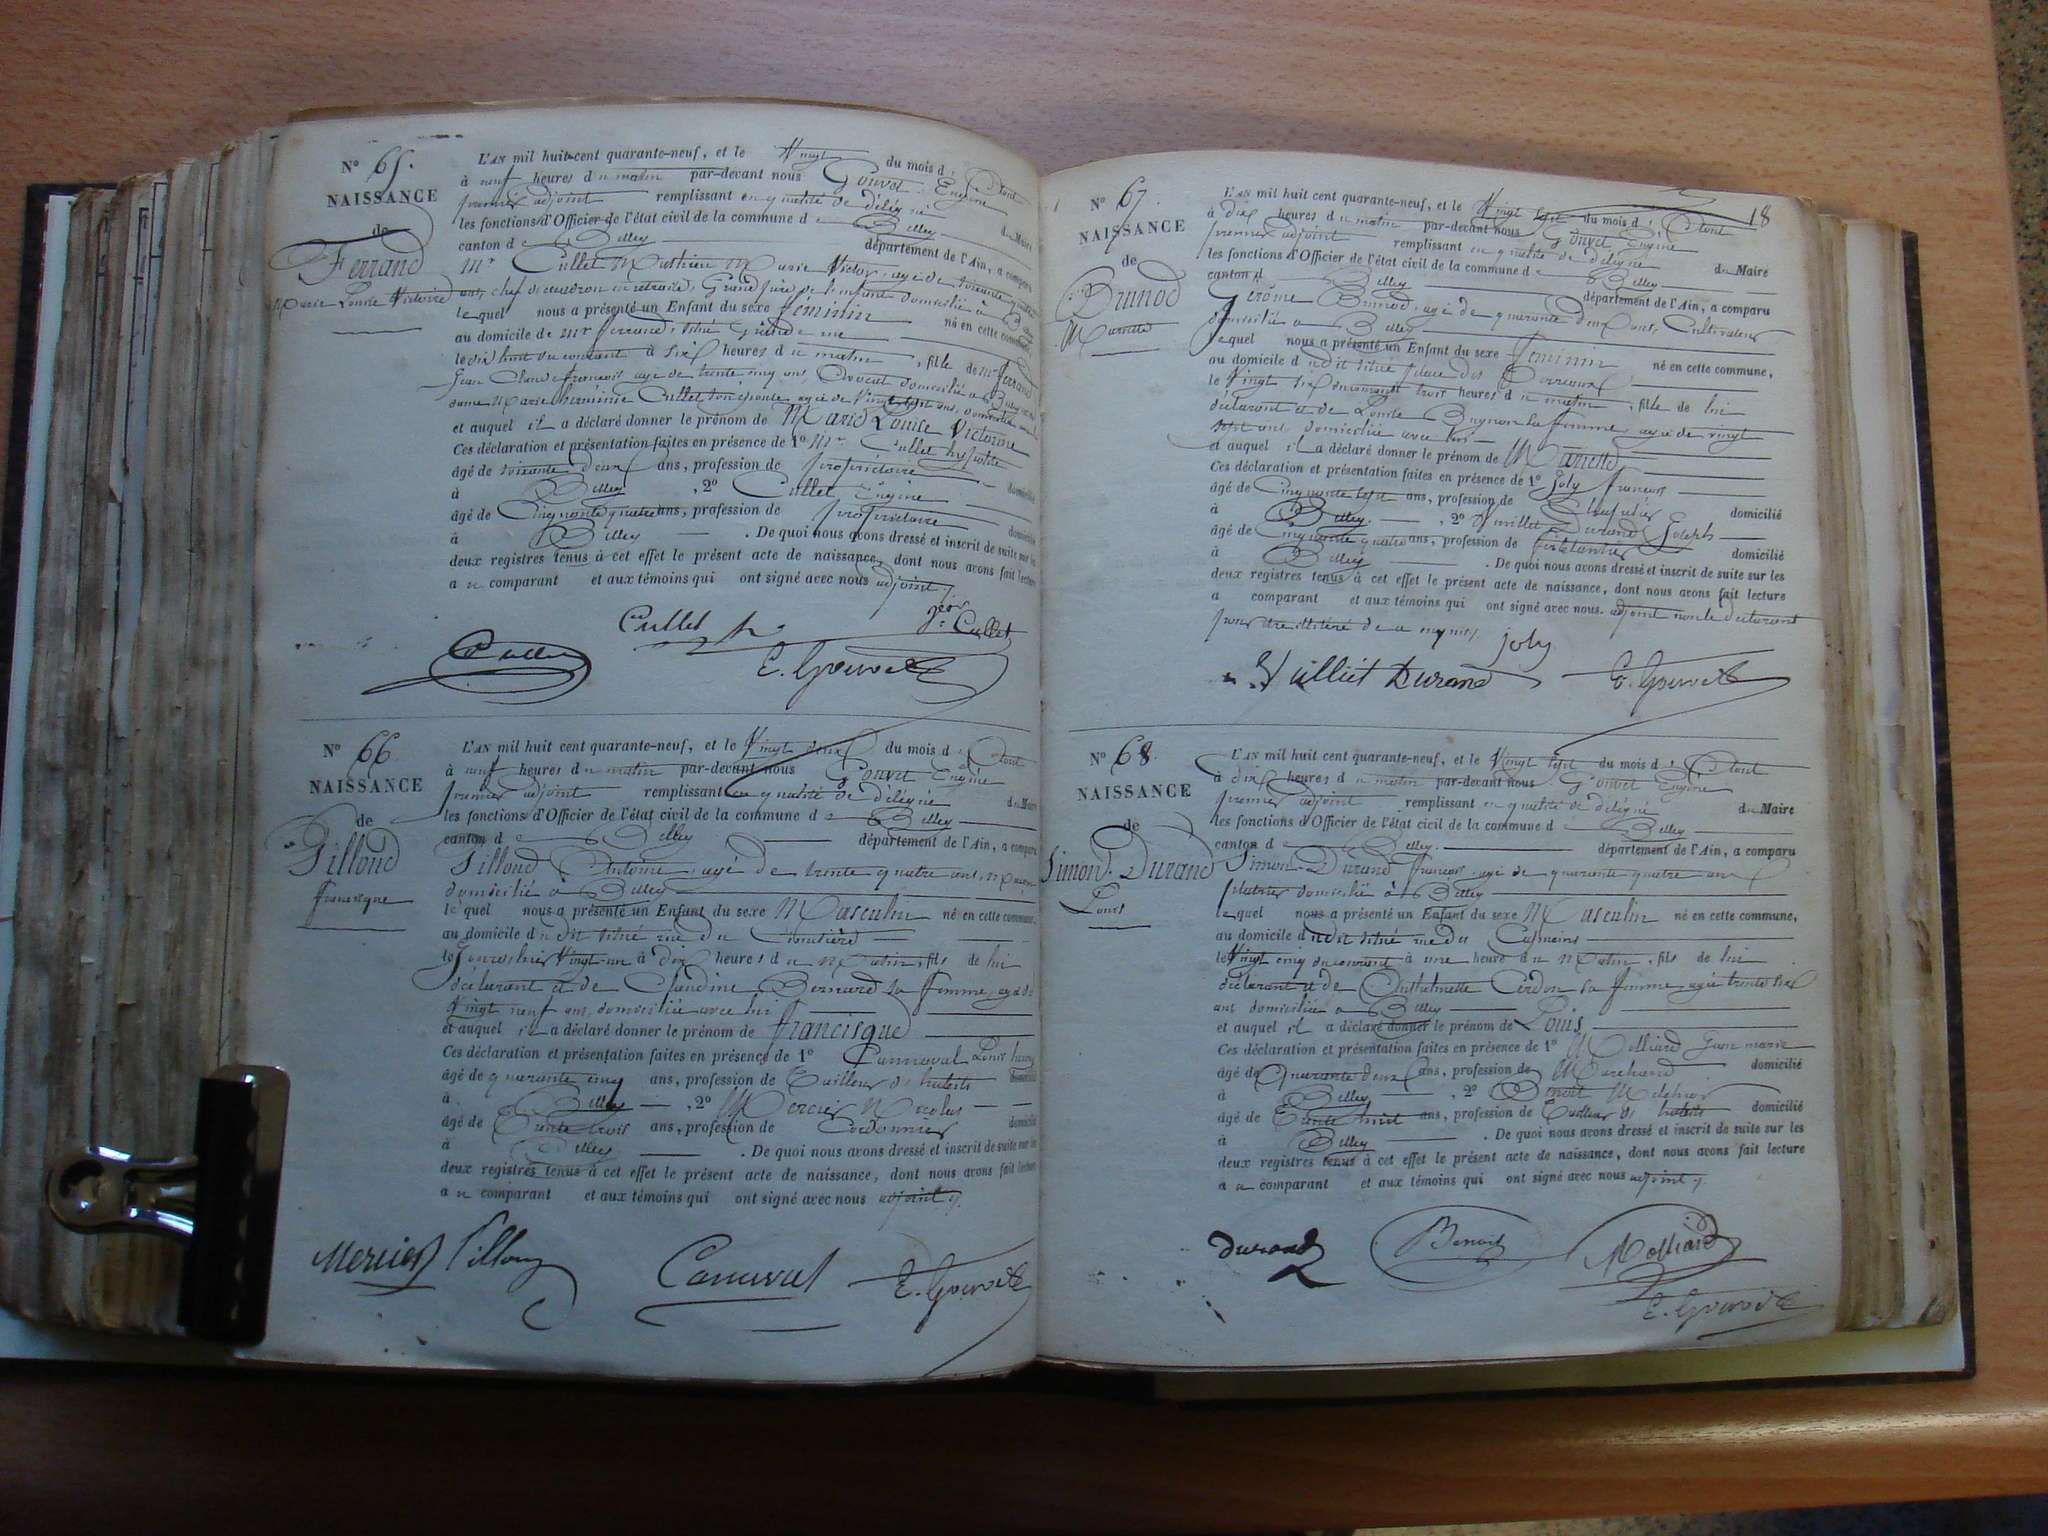 N° 65.
NAISSANCE
de
Ferrand
Marie Louise Victoire
L'AN mil huit cent quarante-neuf, et le Vingt du mois d' Aout
à neuf heures du matin par-devant nous Gouvet Eugène
premier adjoint remplissant en qualité de délégué du Maire
les fonctions d'Officier de l'état civil de la commune de Belley
canton de Belley département de l'Ain, a comparu
Mr Cullet Mathieu Marie Victor, agé de soixante
ans, chef d'escadron en retraite, Grand père de l'enfant domicilié à
lequel nous a présenté un Enfant du sexe féminin né en cette commune,
au domicile de Mr ferrand situé Grande rue
le dix huit du courant à six heures du matin, fille de Mr ferrand
Jean Claude francois agé de trente cinq ans, Avocat domicilié à Belley
dame Marie herminie Cullet son épouse, agée de Vingt sept ans, domiciliée
et auquel il a déclaré donner le prénom de Marie Louise Victoire
Ces déclaration et présentation faites en présence de 1° Mr Cullet hypolite
âgé de soixante deux ans, profession de propriétaire domicilié
à Belley, 2° Cullet Eugène
âgé de Cinquante quatre ans, profession de propriétaire domicilié
à Belley. De quoi nous avons dressé et inscrit de suite sur les
deux registres tenus à cet effet le présent acte de naissance, dont nous avons fait lecture
au comparant et aux témoins qui ont signé avec nous adjoint
Cullet h. Cullet
Cullet E. Gouvet
N° 66
NAISSANCE
de
Pillond
francisque
L'AN mil huit cent quarante-neuf, et le Vingt deux du mois d' Aout
à neuf heures du matin par-devant nous Gouvet Eugène
premier adjoint remplissant en qualité de délégué du Maire
les fonctions d'Officier de l'état civil de la commune de Belley
canton de Belley département de l'Ain, a comparu
Pillond Antoine, agé de trente quatre ans,
domicilié à Belley
lequel nous a présenté un Enfant du sexe Masculin né en cette commune,
au domicile dudit situé rue du
le Jour d'hier Vingt-un à dix heures du Matin, fils de lui
déclarant et de Claudine Bernard sa femme, agée de
Vingt neuf ans, domiciliée avec lui
et auquel il a déclaré donner le prénom de francisque
Ces déclaration et présentation faites en présence de 1° Canaval Louis
âgé de quarante cinq ans, profession de Tailleur d'habits domicilié
à Belley, 2° Mercier Nicolas
âgé de Trente trois ans, profession de Cordonnier domicilié
à Belley. De quoi nous avons dressé et inscrit de suite sur les
deux registres tenus à cet effet le présent acte de naissance, dont nous avons fait lecture
au comparant et aux témoins qui ont signé avec nous adjoint
Mercier Pillond Canaval E. Gouvet
18
N° 67
NAISSANCE
de
Brunod
Mariette
L'AN mil huit cent quarante-neuf, et le Vingt sept du mois d' Aout
à dix heures du matin par-devant nous Gouvet Eugène
premier adjoint remplissant en qualité de délégué du Maire
les fonctions d'Officier de l'état civil de la commune de Belley
canton d Belley département de l'Ain, a comparu
Jérôme Brunod, agé de quarante deux ans, Cultivateur
domicilié à Belley
lequel nous a présenté un Enfant du sexe féminin né en cette commune,
au domicile dudit situé place des Terreaux
le Vingt six du courant à trois heures du matin, fille de lui
déclarant et de Louise sa femme, agée de vingt
sept ans domiciliée avec lui
et auquel il a déclaré donner le prénom de Mariette
Ces déclaration et présentation faites en présence de 1° Joly francois
âgé de Cinquante sept ans, profession de domicilié
à Belley, 2° Vuillet Durand Joseph
âgé de Cinquante quatre ans, profession de ferblantier domicilié
à Belley. De quoi nous avons dressé et inscrit de suite sur les
deux registres tenus à cet effet le présent acte de naissance, dont nous avons fait lecture
a comparant et aux témoins qui ont signé avec nous. adjoint non le déclarant
pour être illitéré de ce requis
joly
Vuilliet Durand E. Gouvet
N° 68
NAISSANCE
de
Simon-Durand
Louis
L'AN mil huit cent quarante-neuf, et le Vingt sept du mois d' Aout
à dix heures du matin par-devant nous Gouvet Eugène
premier adjoint remplissant en qualité de délégué du Maire
les fonctions d'Officier de l'état civil de la commune d Belley
canton de Belley département de l'Ain, a comparu
Simon-Durand francois, agé de quarante quatre ans
platrier domicilié à Belley
lequel nous a présenté un Enfant du sexe Masculin né en cette commune,
au domicile dudit situé rue des Capucins
le Vingt cinq du courant à une heure du Matin, fils de lui
déclarant et de Anthelmette Cerdon sa femme, agée trente six
ans domiciliée à Belley
et auquel il a déclaré donner le prénom de Louis
Ces déclaration et présentation faites en présence de 1° Molliard Jean marie
âgé de Quarante deux ans, profession de Marchand domicilié
à Belley, 2° Benoit Melchior
âgé de Trente huit ans, profession de Tailleur d' habits domicilié
à Belley. De quoi nous avons dressé et inscrit de suite sur les
deux registres tenus à cet effet le présent acte de naissance, dont nous avons fait lecture
au comparant et aux témoins qui ont signé avec nous adjoint
Durand Benoit Molliard
E. Gouvet